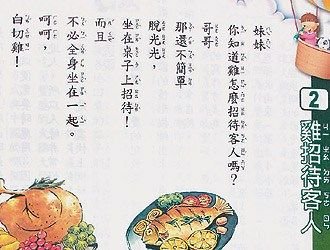 2
雞招待客人
妹妹
你知道雞怎麼招待客人嗎?
哥哥
那還不簡單
脫光光,
坐在桌子上招待!
而且
不必全身坐在一起。
呵呵,
白切雞!